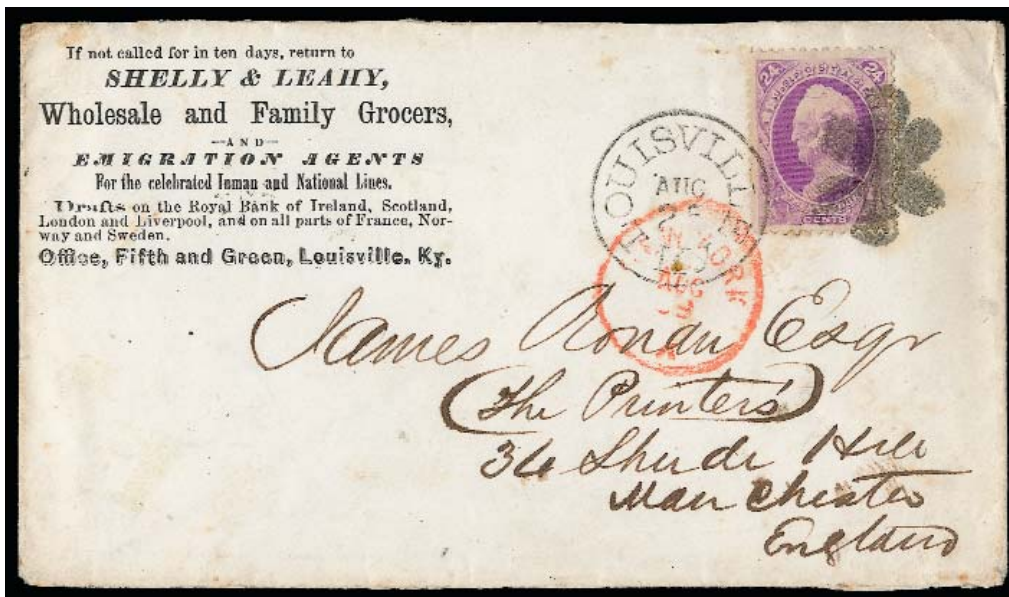 If not called for in ten days, return to
SHELLY & LEAHY,
Wholesale and Family Grocers,
—AND—
EMIGRATION AGENTS
For the celebrated Inman and National Lines.
Drafts on the Royal Bank of Ireland, Scotland,
London and Liverpool, and on all parts of France, Nor-
way and Sweden.
Office, Fifth and Green, Louisville, Ky.
24 24
CENTS
LOUISVILLE
AUG
YORK
AUG
James Ronan Esqr
(The Printers)
36 Shude Hill
Manchester
England